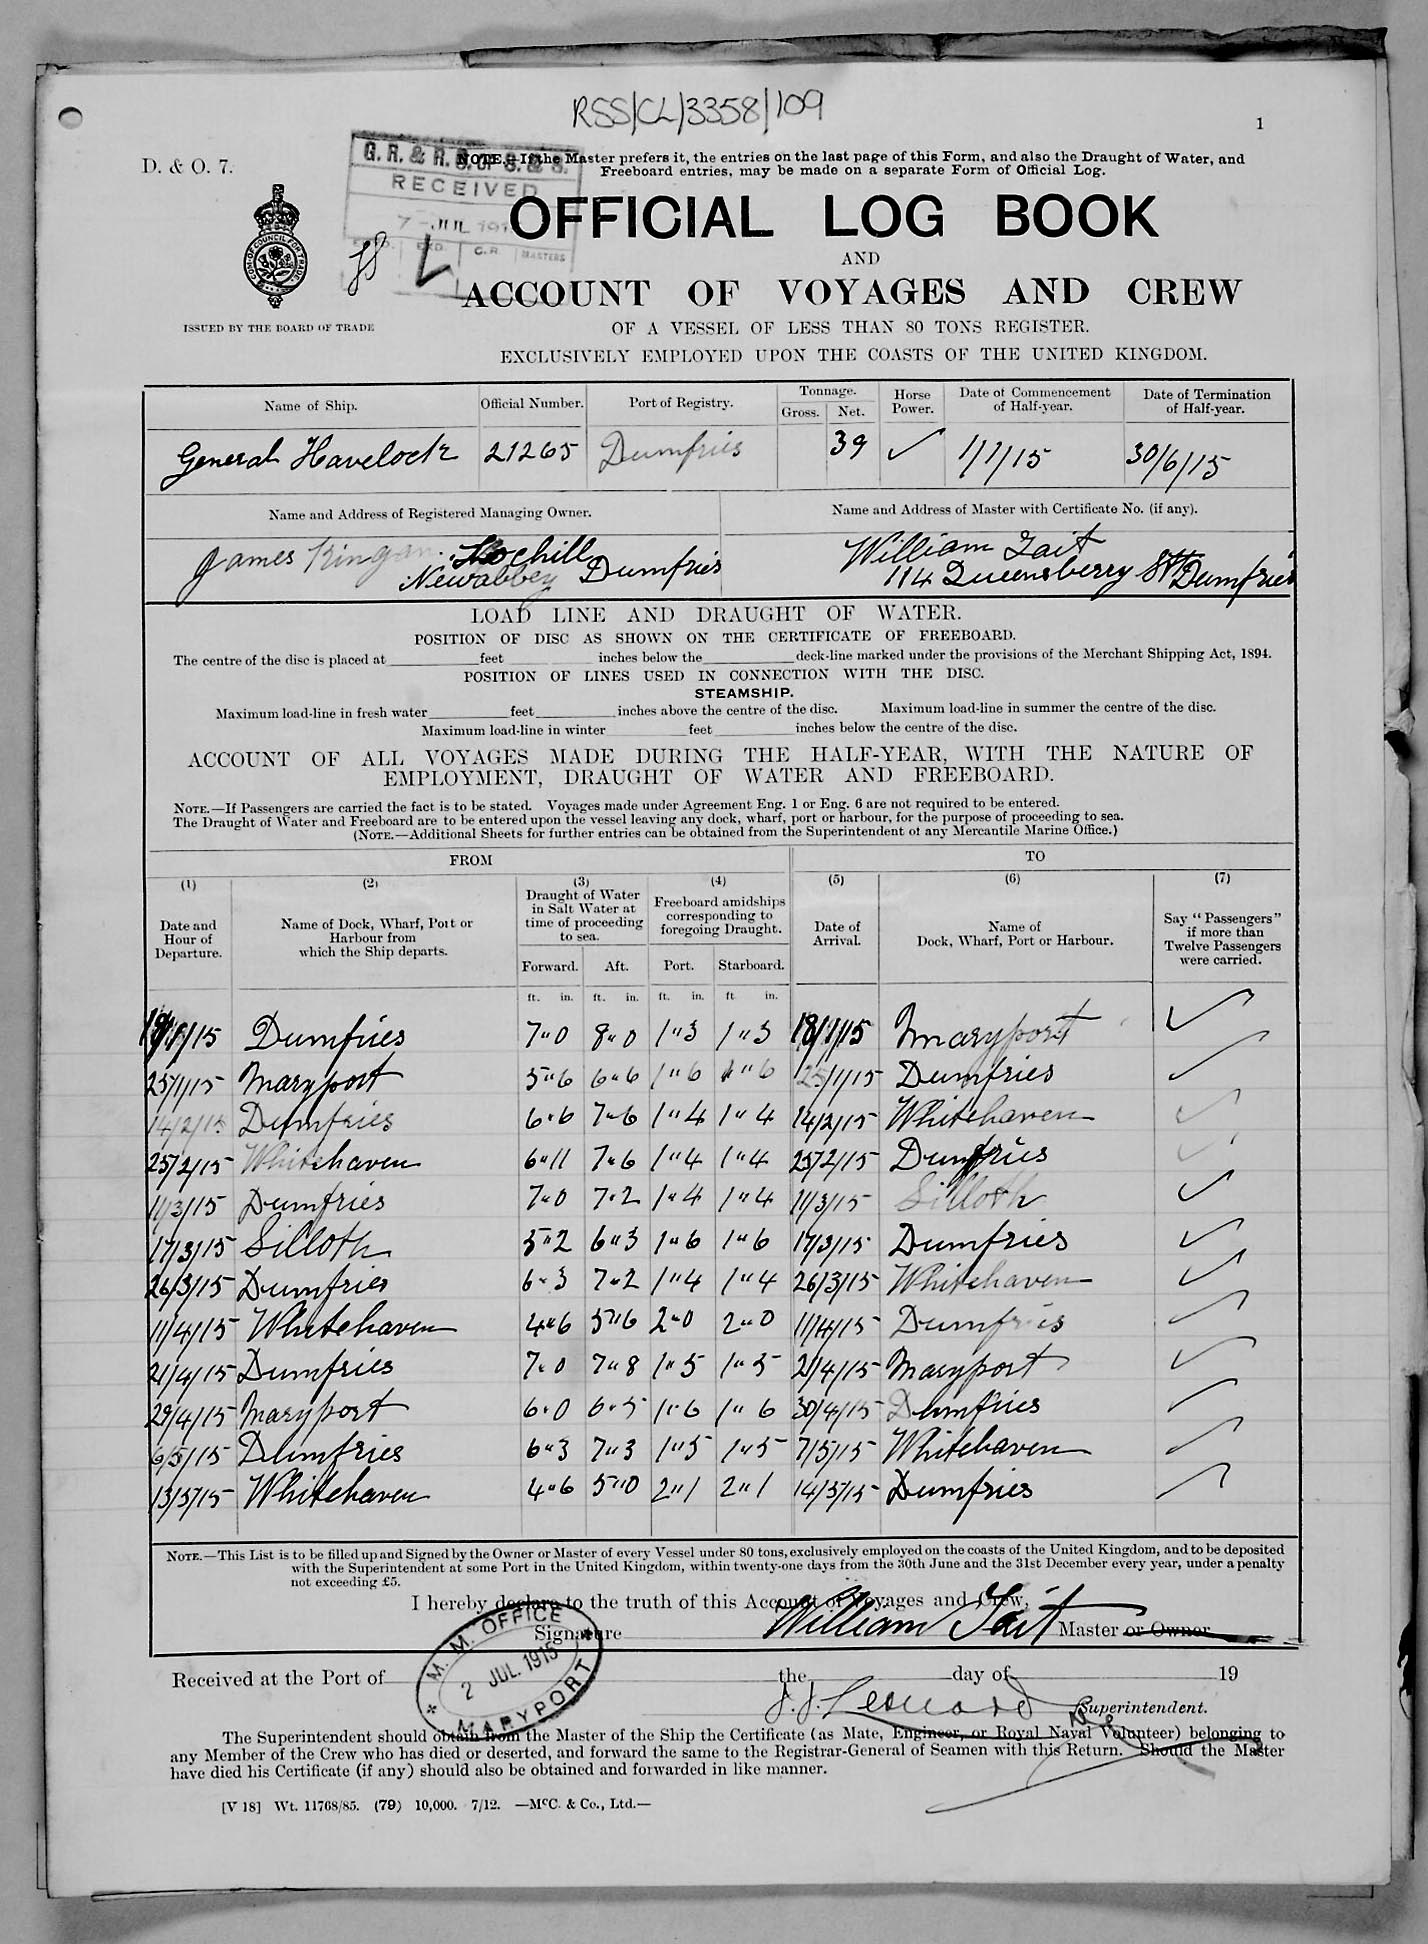 RSS/CL/3358/109
1
D. & O. 7.
G. R. & R. S. OF S. & S.
RECEIVED
7 - JUL 191
C.R. MASTERS
NOTE.—If the Master prefers it, the entries on the last page of this Form, and also the Draught of Water, and
Freeboard entries, may be made on a separate Form of Official Log.
OFFICIAL LOG BOOK
AND
ACCOUNT OF VOYAGES AND CREW
COM. OF COUNCIL FOR TRADE
ISSUED BY THE BOARD OF TRADE
OF A VESSEL OF LESS THAN 80 TONS REGISTER.
EXCLUSIVELY EMPLOYED UPON THE COASTS OF THE UNITED KINGDOM.
Name of Ship. Official Number. Port of Registry. Tonnage. Gross. Net. Horse Power. Date of Commencement of Half-year. Date of Termination of Half-year.
General Havelock 21265 Dumfries 39 ✓ 1/1/15 30/6/15
Name and Address of Registered Managing Owner. Name and Address of Master with Certificate No. (if any).
James Kingan. Lochill William Tait
Newabbey Dumfries 114 Queensberry St Dumfries
LOAD LINE AND DRAUGHT OF WATER.
POSITION OF DISC AS SHOWN ON THE CERTIFICATE OF FREEBOARD.
The centre of the disc is placed at feet inches below the deck-line marked under the provisions of the Merchant Shipping Act, 1894.
POSITION OF LINES USED IN CONNECTION WITH THE DISC.
STEAMSHIP.
Maximum load-line in fresh water feet inches above the centre of the disc. Maximum load-line in summer the centre of the disc.
Maximum load-line in winter feet inches below the centre of the disc.
ACCOUNT OF ALL VOYAGES MADE DURING THE HALF-YEAR, WITH THE NATURE OF
EMPLOYMENT, DRAUGHT OF WATER AND FREEBOARD.
NOTE.—If Passengers are carried the fact is to be stated. Voyages made under Agreement Eng. 1 or Eng. 6 are not required to be entered.
The Draught of Water and Freeboard are to be entered upon the vessel leaving any dock, wharf, port or harbour, for the purpose of proceeding to sea.
(NOTE.—Additional Sheets for further entries can be obtained from the Superintendent of any Mercantile Marine Office.)
FROM TO
(1) (2) (3) (4) (5) (6) (7)
Date and Hour of Departure. Name of Dock, Wharf, Port or Harbour from which the Ship departs. Draught of Water in Salt Water at time of proceeding to sea. Freeboard amidships corresponding to foregoing Draught. Date of Arrival. Name of Dock, Wharf, Port or Harbour. Say "Passengers" if more than Twelve Passengers were carried.
Forward. Aft. Port. Starboard.
ft. in. ft. in. ft. in. ft. in.
18/1/15 Dumfries 7"0 8"0 1"3 1"3 18/1/15 Maryport ✓
25/1/15 Maryport 5"6 6"6 1"6 1"6 25/1/15 Dumfries ✓
14/2/15 Dumfries 6"6 7"6 1"4 1"4 14/2/15 Whitehaven ✓
25/2/15 Whitehaven 6"11 7"6 1"4 1"4 25/2/15 Dumfries ✓
11/3/15 Dumfries 7"0 7"2 1"4 1"4 11/3/15 Silloth ✓
17/3/15 Silloth 5"2 6"3 1"6 1"6 17/3/15 Dumfries ✓
26/3/15 Dumfries 6"3 7"2 1"4 1"4 26/3/15 Whitehaven ✓
11/4/15 Whitehaven 4"6 5"6 2"0 2"0 11/4/15 Dumfries ✓
21/4/15 Dumfries 7"0 7"8 1"5 1"5 21/4/15 Maryport ✓
29/4/15 Maryport 6"0 6"5 1"6 1"6 30/4/15 Dumfries ✓
6/5/15 Dumfries 6"3 7"3 1"5 1"5 7/5/15 Whitehaven ✓
13/5/15 Whitehaven 4"6 5"0 2"1 2"1 14/5/15 Dumfries ✓
NOTE.—This List is to be filled up and Signed by the Owner or Master of every Vessel under 80 tons, exclusively employed on the coasts of the United Kingdom, and to be deposited
with the Superintendent at some Port in the United Kingdom, within twenty-one days from the 30th June and the 31st December every year, under a penalty
not exceeding £5.
I hereby declare to the truth of this Account of Voyages and Crew,
Signature William Tait Master or Owner
M. M. OFFICE
2 JUL. 1915
MARYPORT
Received at the Port of the day of 19
J. J. Leonard Superintendent.
The Superintendent should obtain from the Master of the Ship the Certificate (as Mate, Engineer, or Royal Naval Volunteer) belonging to
any Member of the Crew who has died or deserted, and forward the same to the Registrar-General of Seamen with this Return. Should the Master
have died his Certificate (if any) should also be obtained and forwarded in like manner.
[V 18] Wt. 11768/85. (79) 10,000. 7/12. —McC. & Co., Ltd.—